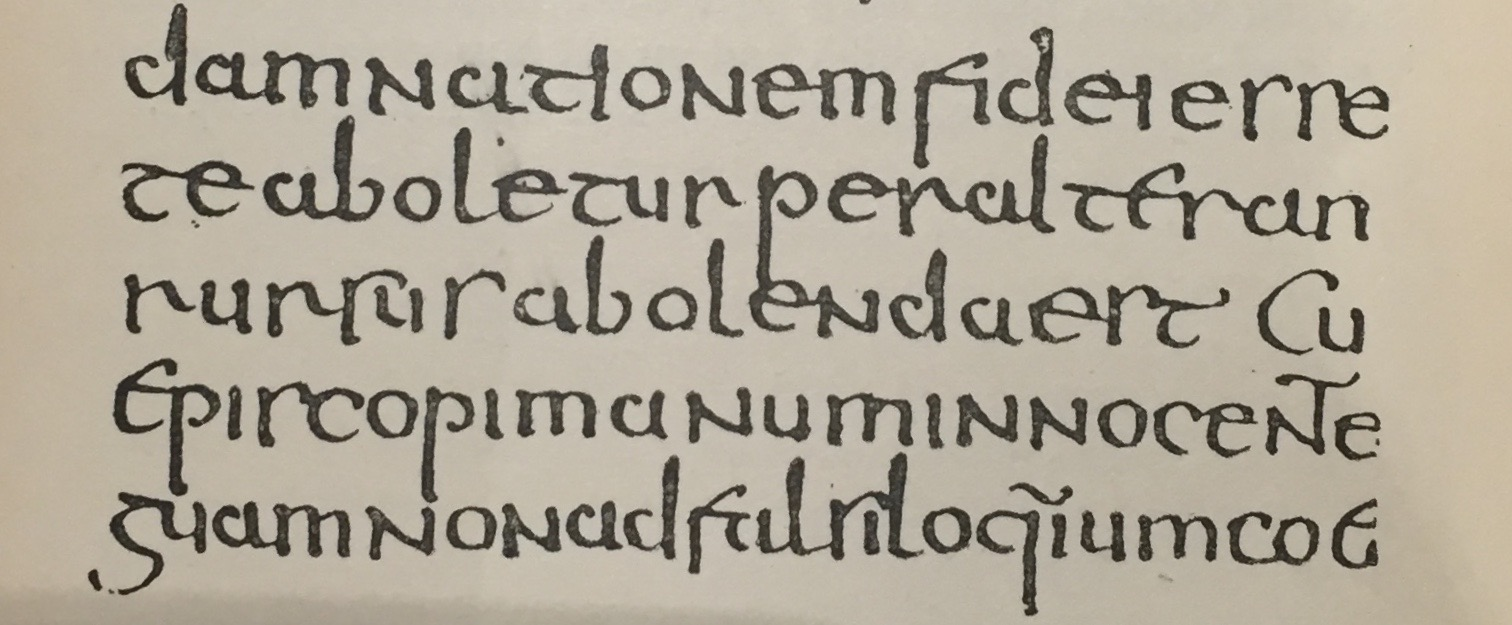 damnationemfideiesse
teaboleturperaltesar
rursusabolendaest Cu
Episcopimanuminnocente
guamnonadfalsiloq̃iumcoe